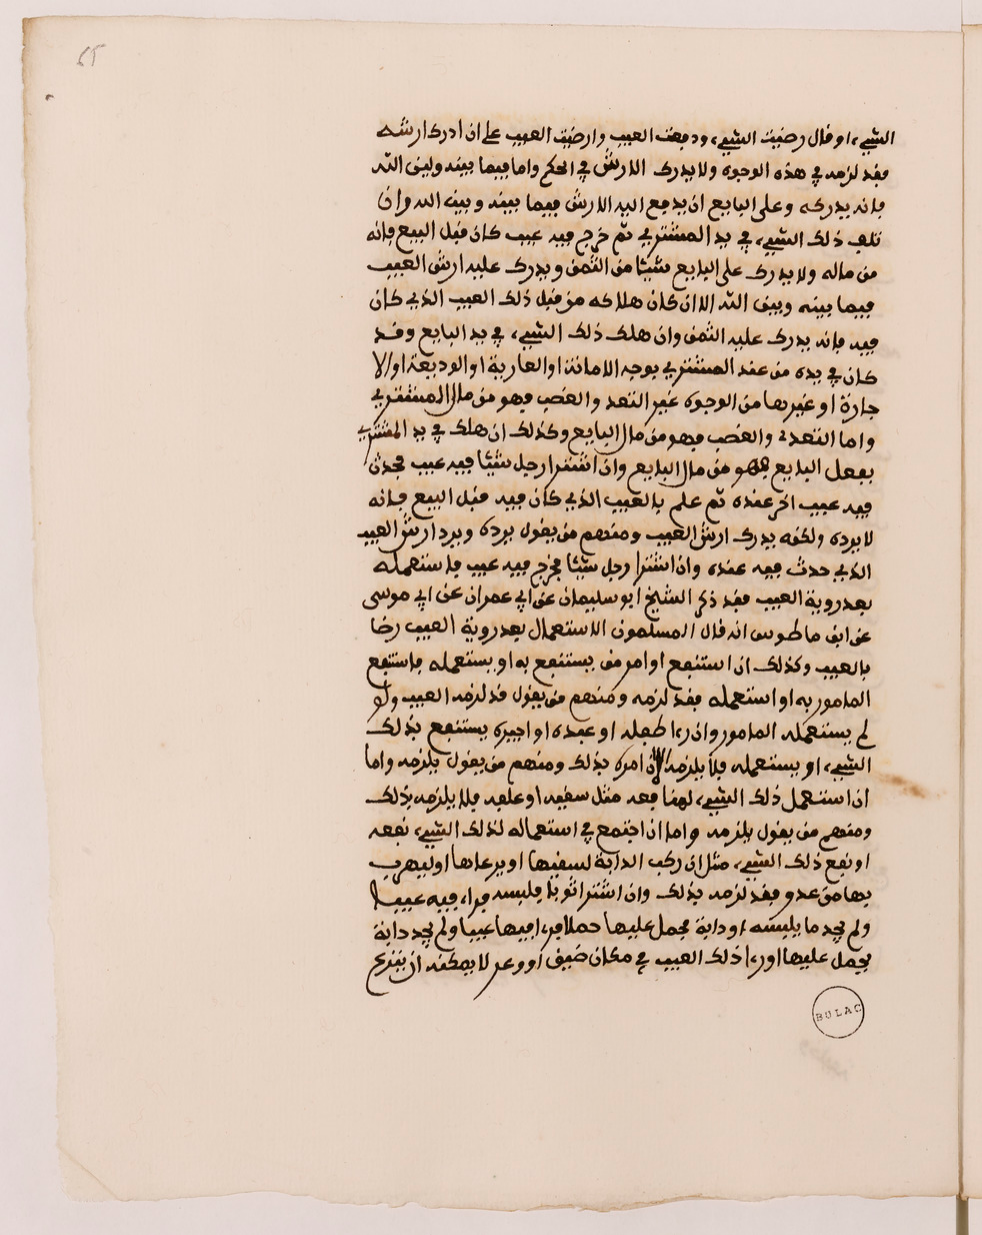 65
الشيء او قال رضيت الشيء ودفعت العيب وارضيت العيب على ان ادرك ارشه
فقد لزمه في هذه الوجوه ولا يدرك الارش في الحكم واما فيما بينه وبين الله
فانه يدركه وعلى البايع ان يدفع اليه الارش فيما بينه وبين الله وان
تلف ذلك الشيء في يد المشتري ثم خرج فيه عيب كان قبل البيع فانه
من ماله ولا يدرك على البايع شيئا من الثمن ويدرك عليه ارش العيب
فيما بينه وبين الله الا ان كان هلاكه من قبل ذلك العيب الذي كان
فيه فانه يدرك عليه الثمن وان هلك ذلك الشيء في يد البايع وقد
كان في يده من عند المشتري بوجه الامانة او العارية او الوديعة او الا
جارة او غيرها من الوجوه غير التعد والغصب فهو من مال المشتري
واما التعدي والغصب فهو من مال البايع وكذلك ان هلك في يد المشتري
بفعل البايع فهو من مال البايع وان اشترا رجل شيئا فيه عيب فحدث
فيه عيب اخر عنده ثم علم بالعيب الذي كان فيه قبل البيع فانه
لا يرده ولكنه يدرك ارش العيب ومنهم من يقول يرده ويرد ارش العيب
الذي حدث فيه عنده وان اشترا رجل شيئا فخرج فيه عيب فاستعمله
بعد روية العيب فقد ذكر الشيخ ابو سليمان عن ابي عمران عن ابي موسى
عن ابن ماطوس انه قال المسلمون الاستعمال بعد روية العيب رضا
بالعيب وكذلك ان استنفع او امر من يستنفع به او يستعمله فاستنفع
المامور به او استعمله فقد لزمه ومنهم من يقول قد لزمه العيب ولو
لم يستعمله المامور وان رءا طفله او عبده او اجيره يستنفع بذلك
الشيء او يستعمله فلا يلزمه الا ان امره بذلك ومنهم من يقول يلزمه واما
ان استعمل ذلك الشيء لهنا فعه مثل سقيه او علفه فلا يلزمه بذلك
ومنهم من يقول يلزمه واما ان اجتمع في استعماله لذلك الشيء نفعه
او نفع ذلك الشيء مثل ان ركب الدابة ليسقيها او يرعاها او ليهرب
بها من عدو فقد لزمه بذلك وان اشترا ثوبا فلبسه فرءا فيه عيبا
ولم يجد ما يلبسه او دابة فحمل عليها حملا فرءا فيها عيبا ولم يجد دابة
يحمل عليها او رءا ذلك العيب في مكان ضيق او وعر لا يمكنه ان ينزع
BULAC